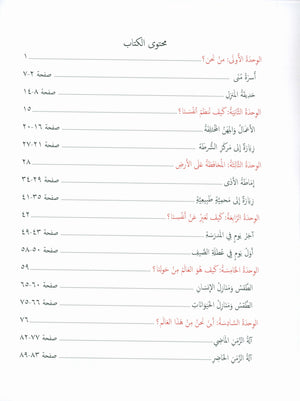 محتوى الكتاب
الوِحدَةُ الأُولَى: مِنْ نَحنُ؟ ١
أُسرَةُ مُنَى صفحة ٢-٧
حَدِيقَةُ المَنزِلِ صفحة ٨-١٤
الوِحدَةُ الثَّانِيَةُ: كَيفَ نُنَظِّمُ أنْفُسَنَا؟ ١٥
الأَعمَالُ وَالمِهَنُ المُختَلِفَة صفحة ١٦-٢٠
زِيَارَةٌ إلَى مَركَزِ الشُّرطَة صفحة ٢١-٢٧
الوِحدَةُ الثَّالِثَةُ: المُحَافَظَةُ عَلَى الأَرضِ ٢٨
إمَاطَةُ الأَذَى صفحة ٢٩-٣٤
زِيَارَةٌ إلَى مَحمِيَّةٍ طَبِيعِيَّةٍ صفحة ٣٥-٤١
الوِحدَةُ الرَّابِعَةُ: كَيفَ نُعَبِّرُ عَنْ أَنْفُسِنَا؟ ٤٢
آخِرُ يَومٍ فِي المَدرَسَة صفحة ٤٣-٤٩
أَوَّلُ يَومٍ فِي عُطلَةِ الصَّيف صفحة ٥٠-٥٨
الوِحدَةُ الخَامِسَةُ: كَيفَ هُوَ العَالَمُ مِنْ حَولِنَا؟ ٥٩
الطَّقْسُ وَمَنَازِلُ الإنسَانِ صفحة ٦٠-٦٥
الطَّقْسُ وَمَنَازِلُ الحَيَوَانَاتِ صفحة ٦٦-٧٥
الوِحدَةُ السَّادِسَةُ: أينَ نَحنُ مِنْ هَذَا العَالَمِ؟ ٧٦
آلَةُ الزَّمَنِ المَاضِي صفحة ٧٧-٨٢
آلَةُ الزَّمَنِ الحَاضِرِ صفحة ٨٣-٨٩